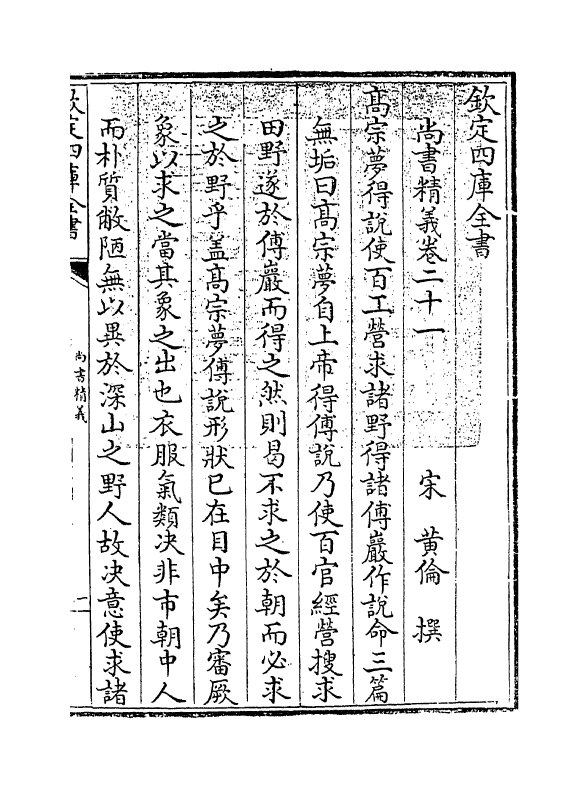 欽定四庫全書
尚書精義卷二十一
宋　黄倫　撰
髙宗夢得說使百工營求諸野得諸傅巖作說命三篇
無垢曰髙宗夢自上帝得傅說乃使百官經營搜求
田野遂於傅巖而得之然則曷不求之於朝而必求
之於野乎盖髙宗夢傅說形狀已在目中矣乃審厥
象以求之當其象之出也衣服氣類决非市朝中人
而朴質敝陋無以異於深山之野人故决意使求諸
欽定四庫全書
尚書精義